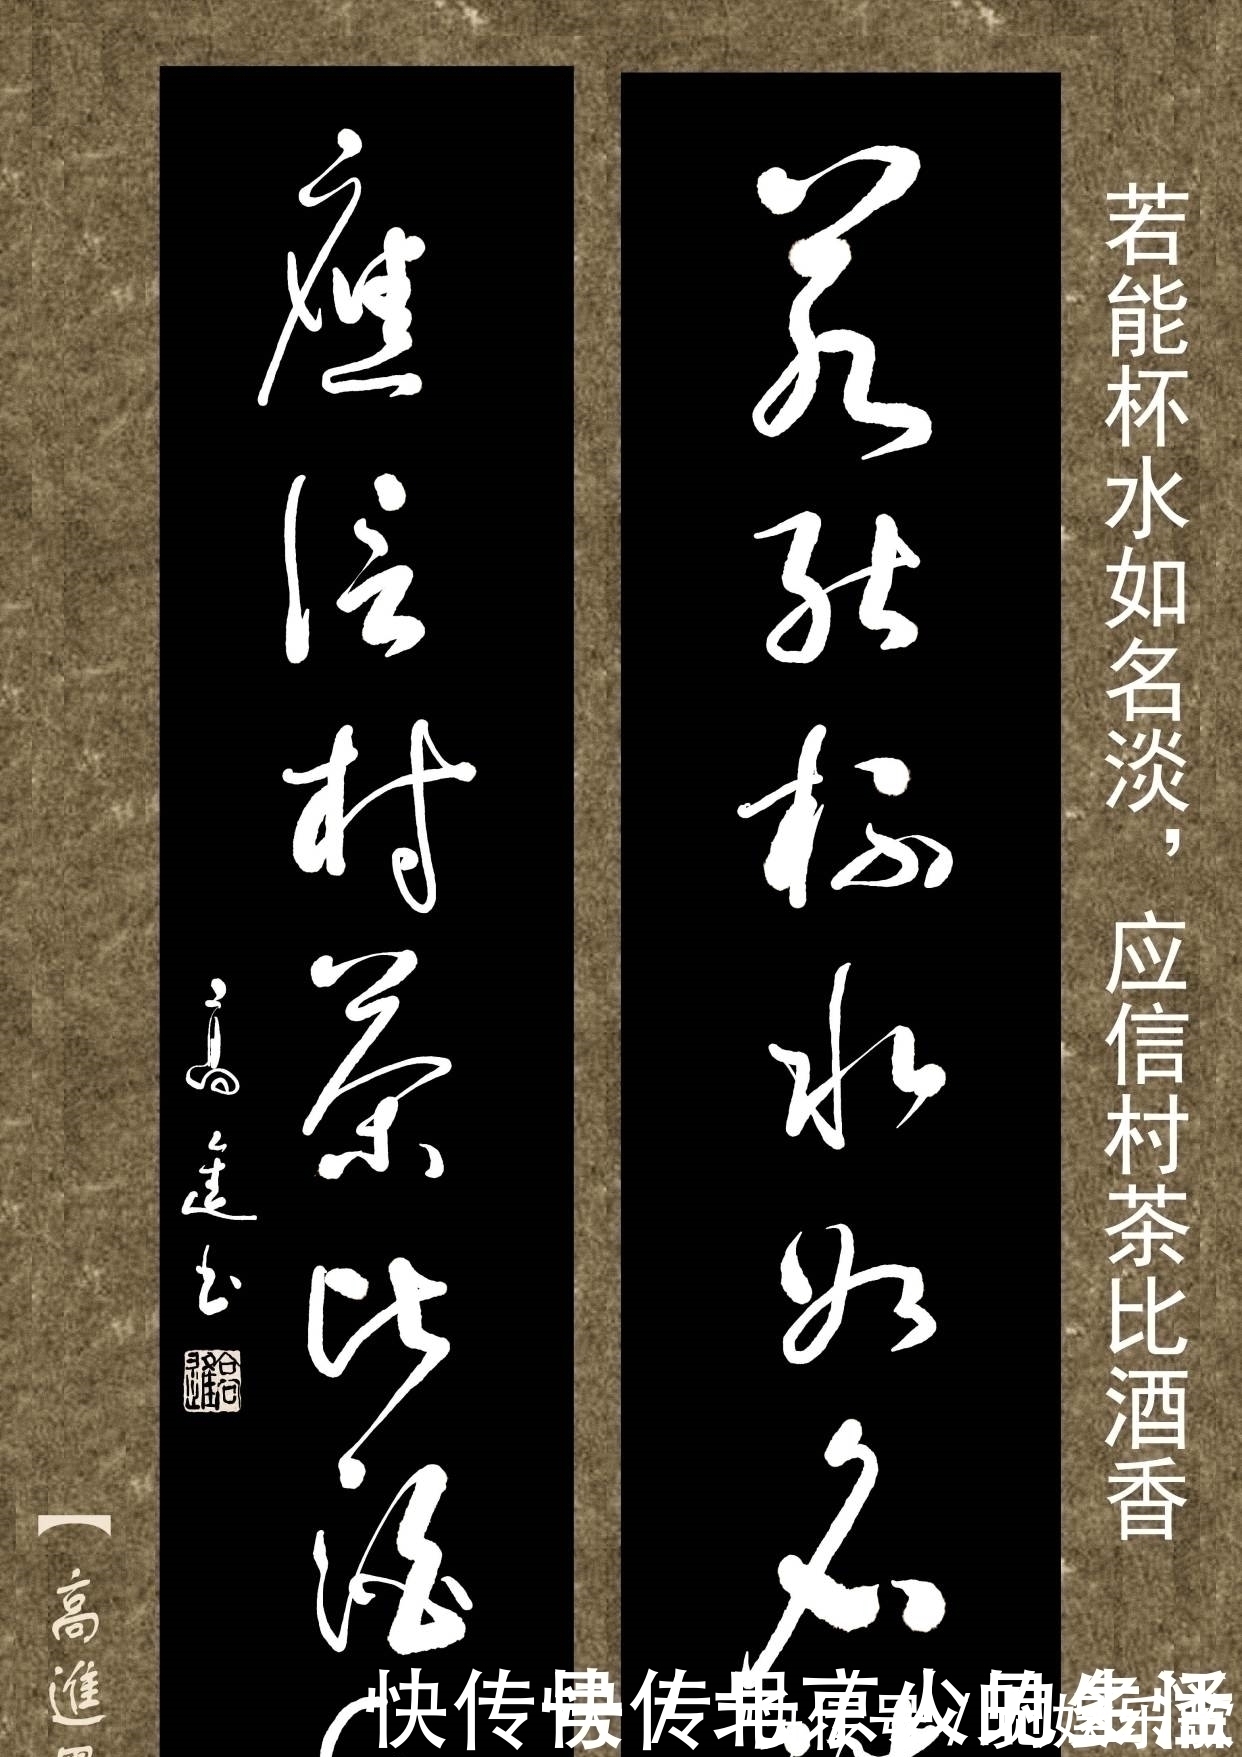 若能杯水如名淡，应信村茶比酒香
若能杯水如名
應信村茶比酒
高進书
【高進
快传号